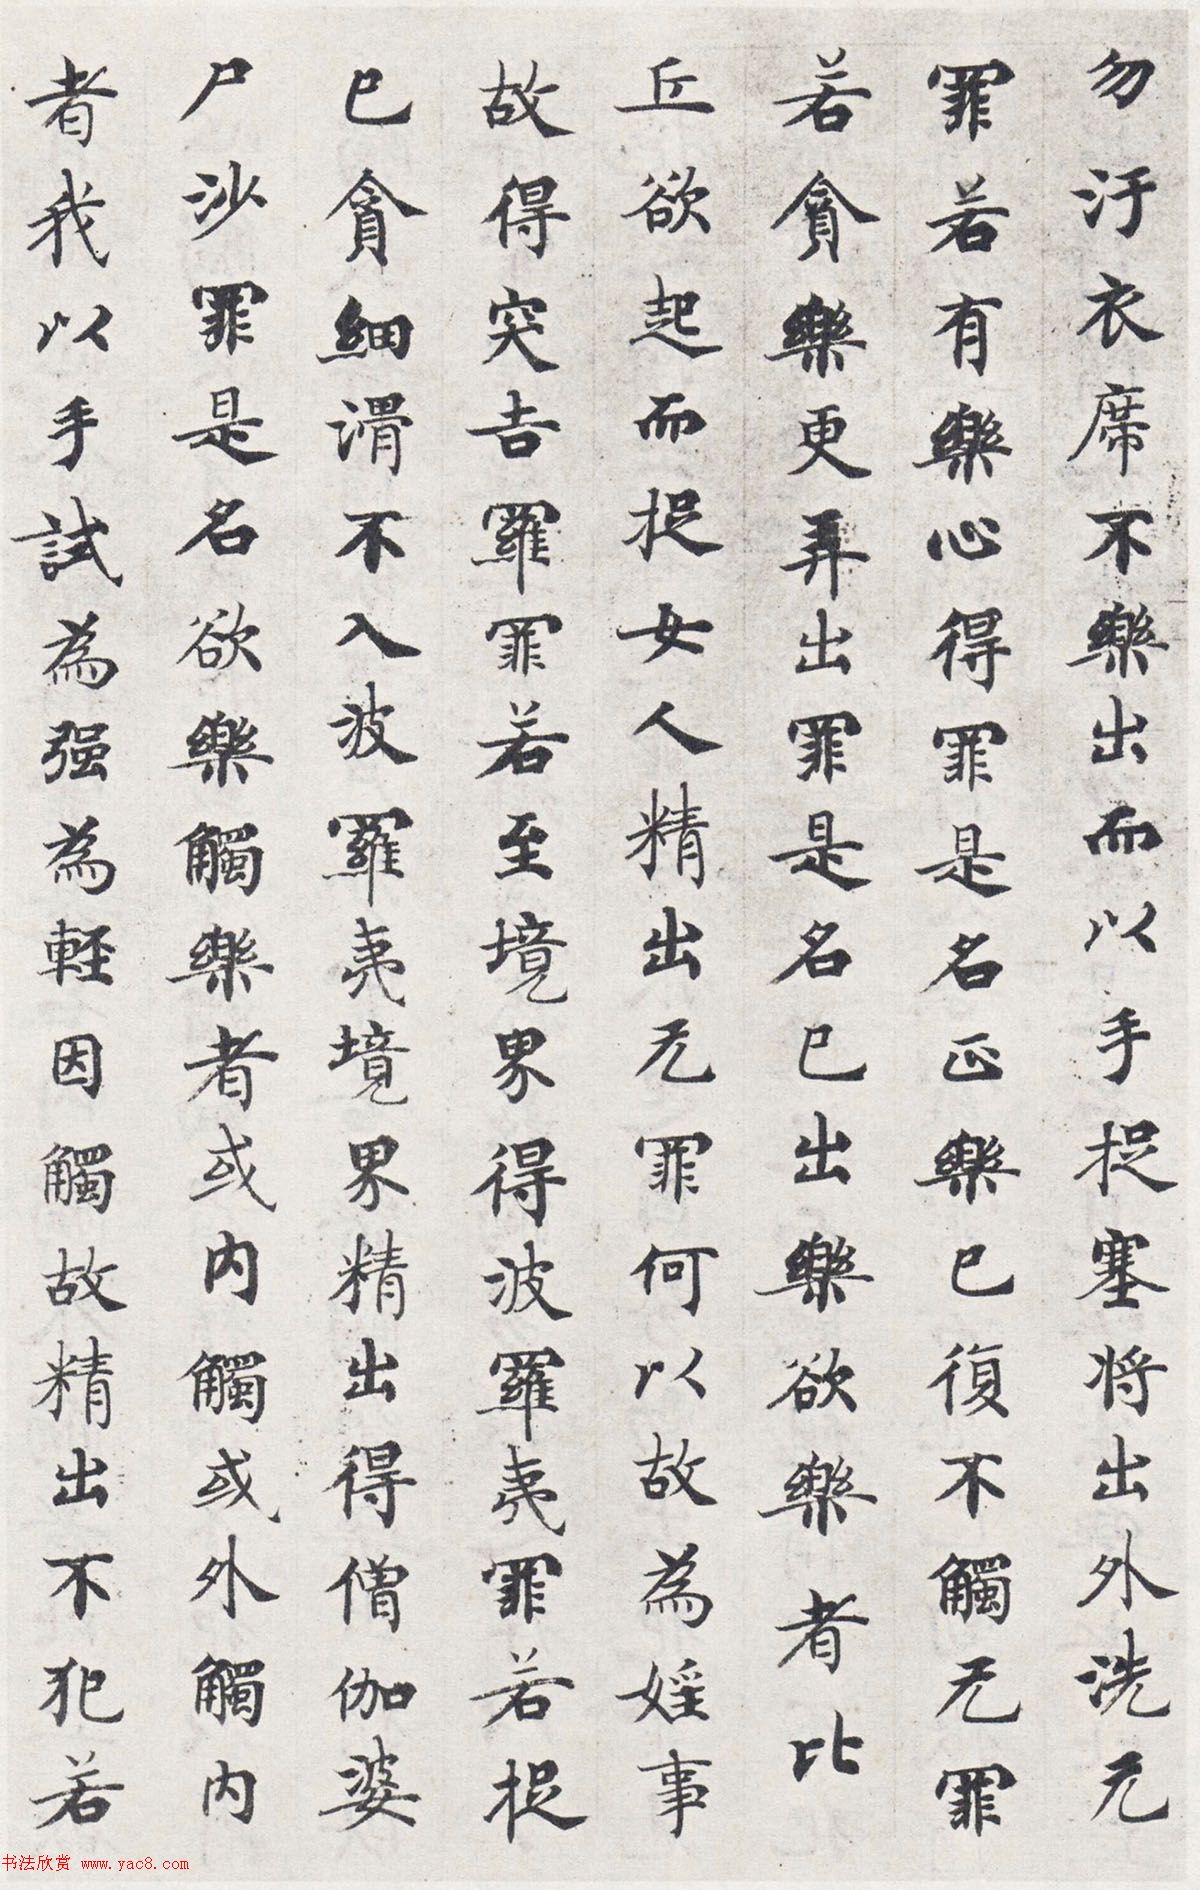 勿汙衣席不樂出而以手捉塞将出外洗无
罪若有樂心得罪是名正樂已復不觸无罪
若貪樂更弄出罪是名已出樂欲樂者比
丘欲起而捉女人精出无罪何以故為婬事
故得突吉羅罪若至境界得波羅夷罪若捉
已貪細滑不入波羅夷境界精出得僧伽婆
尸沙罪是名欲樂觸樂者或内觸或外觸内
者我以手試為强為軽因觸故精出不犯若
书法欣赏 www.yac8.com